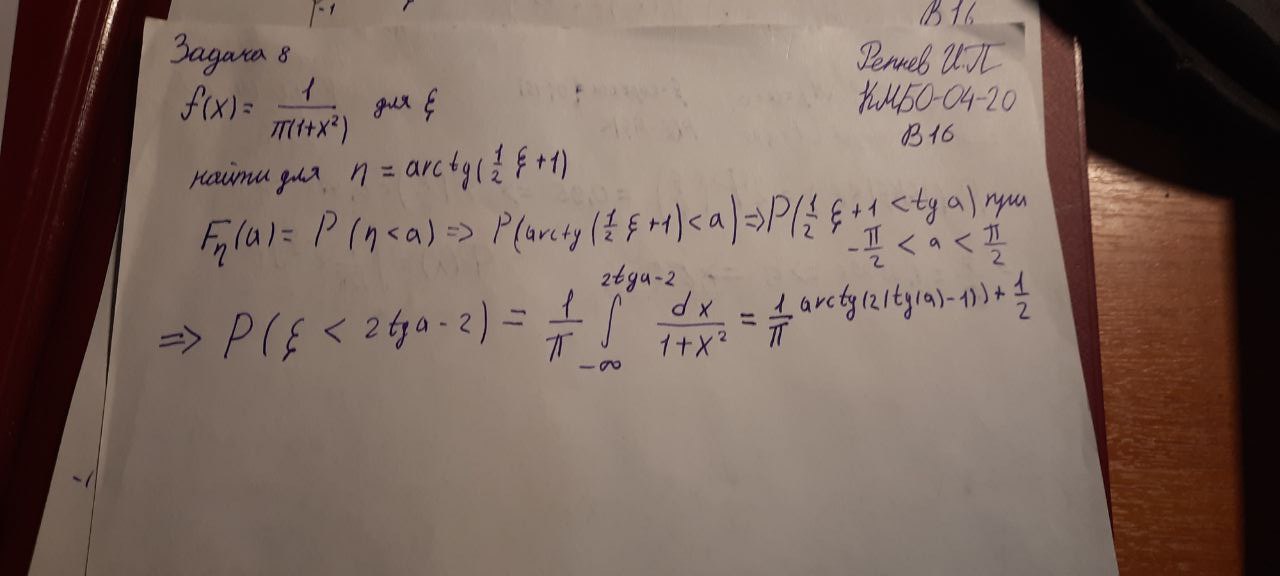 В 16
Задача 8
Репнев И.П
КМБО-04-20
В16
f(x) = 1/(π(1+x²)) для ξ
найти для η = arctg(1/2 ξ + 1)
Fη(a) = P(η < a) => P(arctg(1/2 ξ + 1) < a) => P(1/2 ξ + 1 < tg a) при
-π/2 < a < π/2
=> P(ξ < 2tga - 2) = 1/π ∫_{-∞}^{2tga-2} dx/(1+x²) = 1/π arctg(2(tg(a)-1)) + 1/2